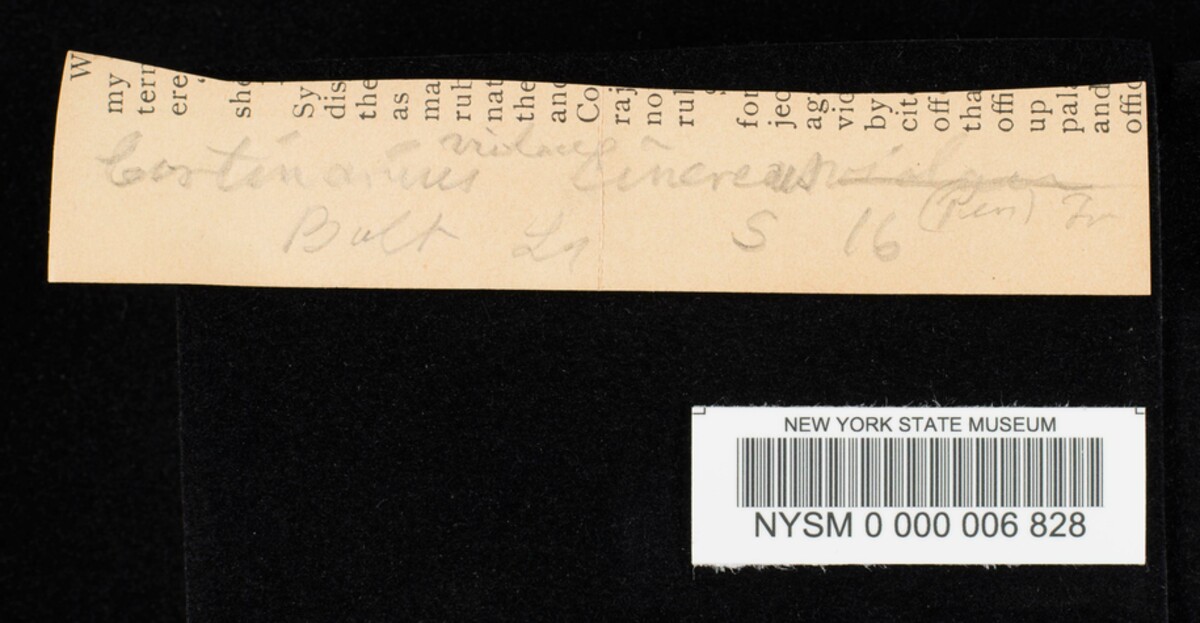 W
my
tern
ere
she
Sy
dis
the
as
ma
rub
nat
the
and
Co
raj
no
rul
for
jec
ag
vic
by
cit
off
tha
offi
up
pala
and
offic
violaceo
Cortinarius cinereus
(Pers) Fr
Bolt S 16
NEW YORK STATE MUSEUM
NYSM 0 000 006 828